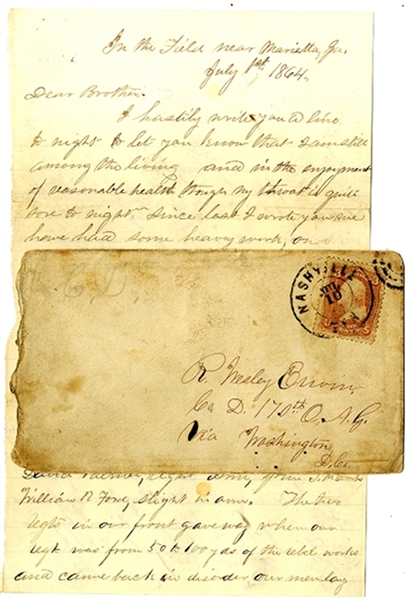 In the Field near Marietta, Ga.
July 1st, 1864.
Dear Brother.
I hastily write you a line
to night to let you know that I am still
among the living and in the enjoyment
of reasonable health though my throat is quite
sore to night. Since last I wrote you we
have had some heavy work, on
C. D.
NASHVILLE
TEN
JUL
10
R. Wesley
Co D. 170th O. N. G.
Via Washington
D.C.
David slight
William R slight in arm. The two
regts in our front gave way when our
regt was from 50 to 100 yds of the rebel works
and came back in disorder our men lay